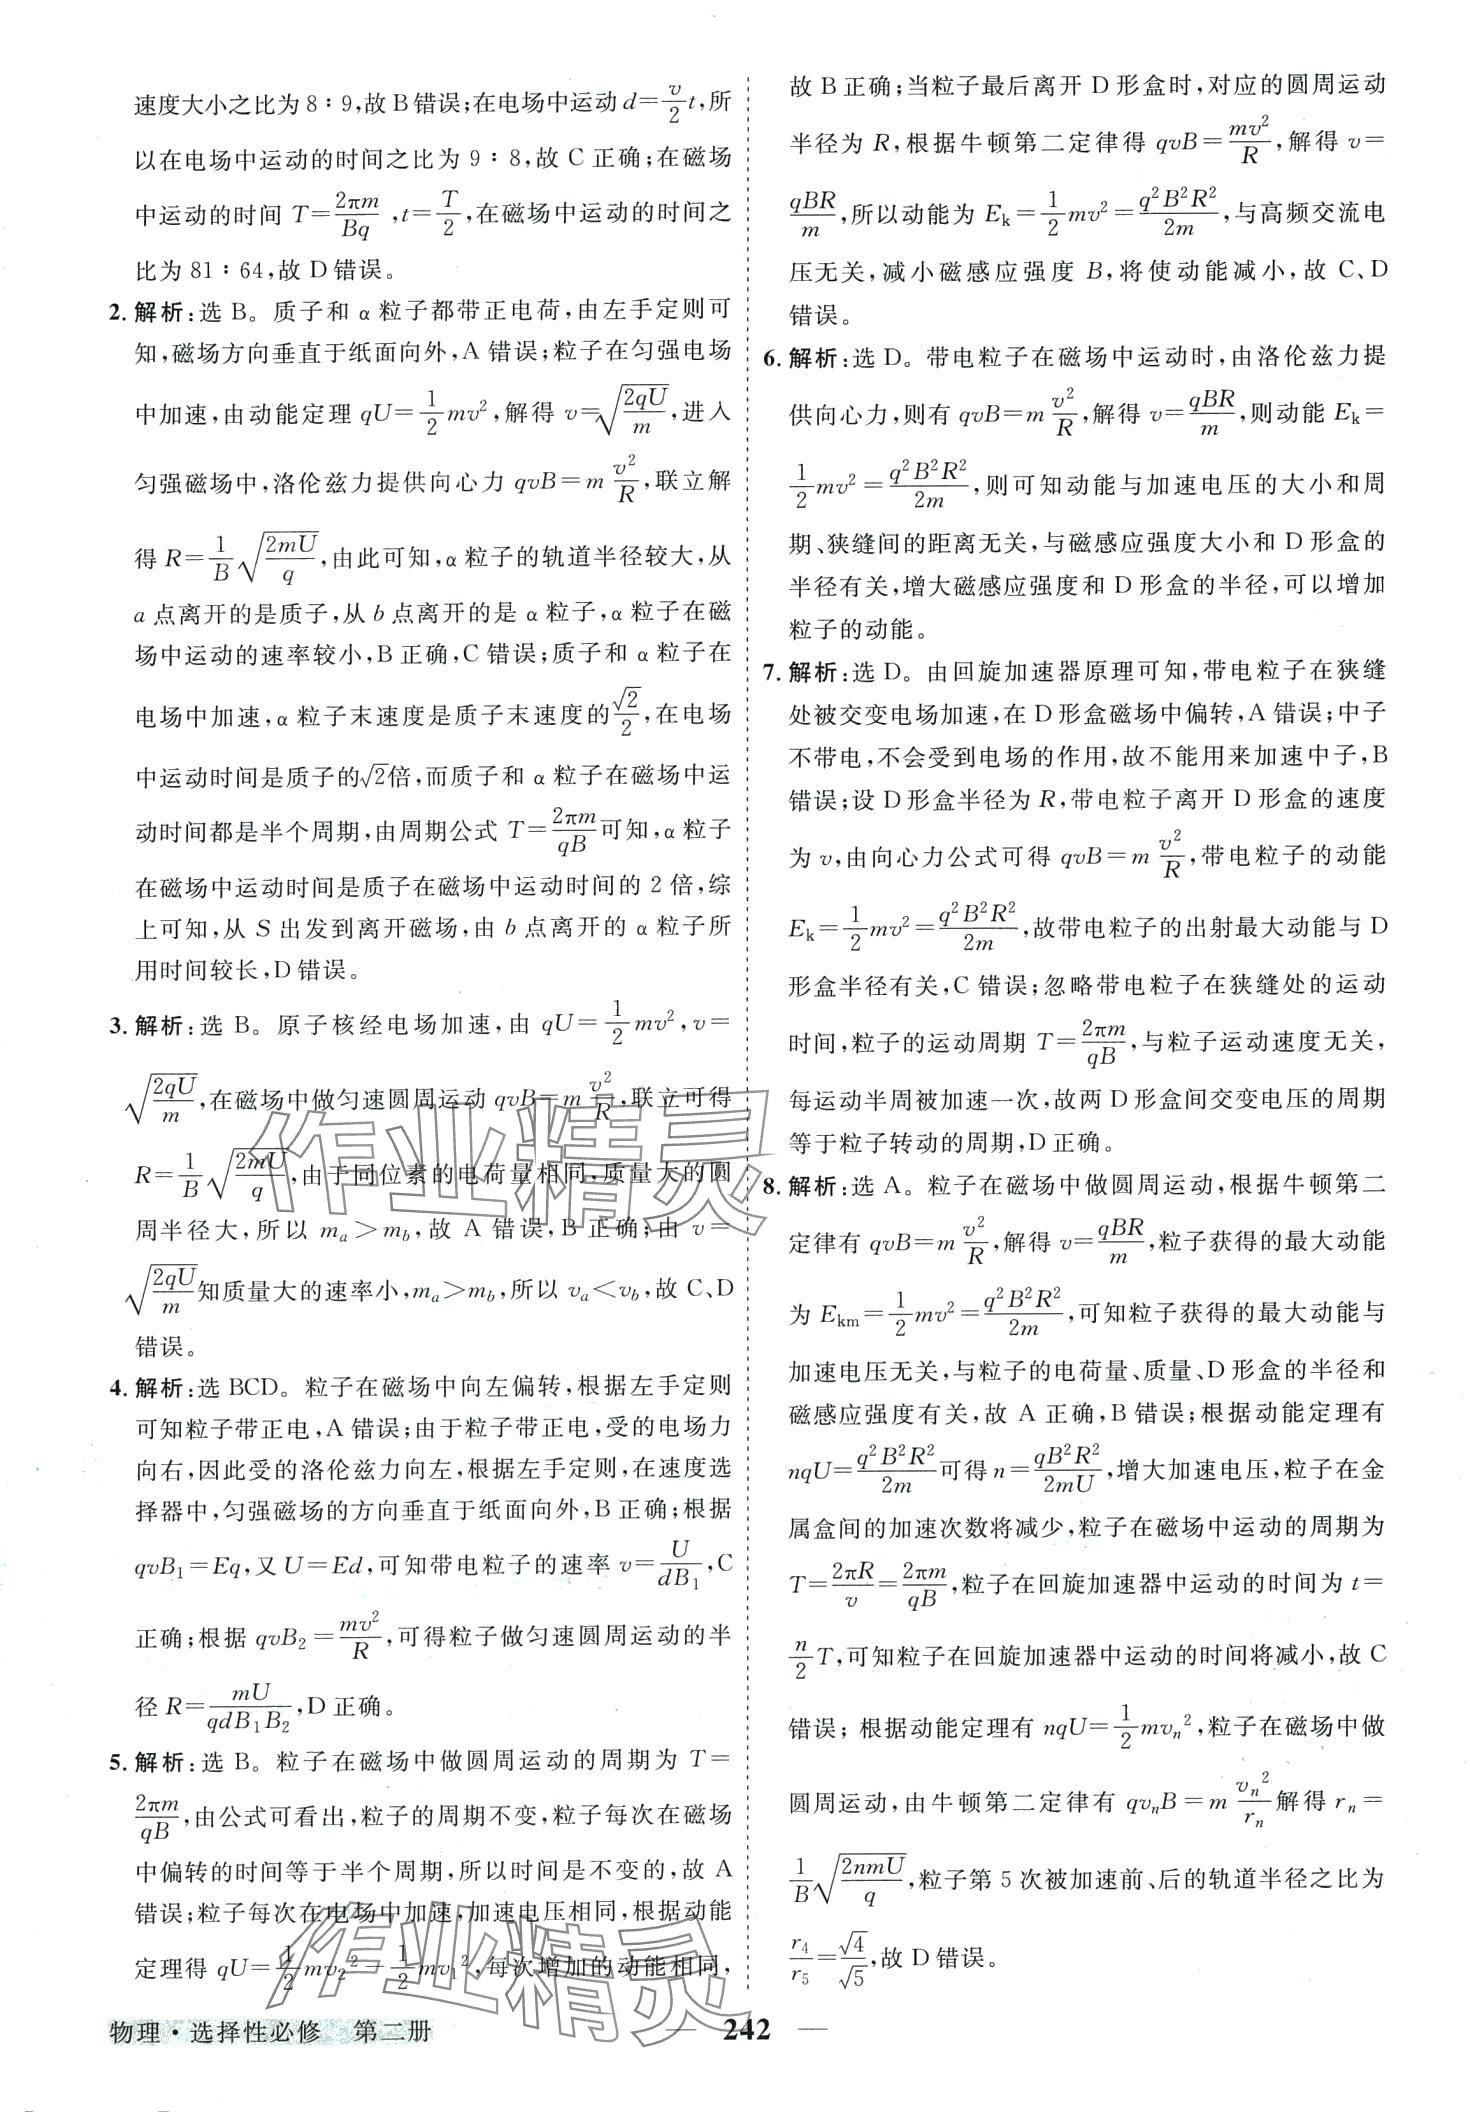 速度大小之比为 8∶9,故 B 错误;在电场中运动 d=\frac{v}{2}t,所
以在电场中运动的时间之比为 9∶8,故 C 正确;在磁场
中运动的时间 T=\frac{2πm}{Bq},t=\frac{T}{2},在磁场中运动的时间之
比为 81∶64,故 D 错误。
2. 解析:选 B。质子和 α 粒子都带正电荷,由左手定则可
知,磁场方向垂直于纸面向外,A 错误;粒子在匀强电场
中加速,由动能定理 qU=\frac{1}{2}mv²,解得 v=\sqrt{\frac{2qU}{m}},进入
匀强磁场中,洛伦兹力提供向心力 qvB=m\frac{v²}{R},联立解
得 R=\frac{1}{B}\sqrt{\frac{2mU}{q}},由此可知,α 粒子的轨道半径较大,从
a 点离开的是质子,从 b 点离开的是 α 粒子,α 粒子在磁
场中运动的速率较小,B 正确,C 错误;质子和 α 粒子在
电场中加速,α 粒子末速度是质子末速度的\frac{\sqrt{2}}{2},在电场
中运动时间是质子的\sqrt{2}倍,而质子和 α 粒子在磁场中运
动时间都是半个周期,由周期公式 T=\frac{2πm}{qB}可知,α 粒子
在磁场中运动时间是质子在磁场中运动时间的 2 倍,综
上可知,从 S 出发到离开磁场,由 b 点离开的 α 粒子所
用时间较长,D 错误。
3. 解析:选 B。原子核经电场加速,由 qU=\frac{1}{2}mv²,v=
\sqrt{\frac{2qU}{m}},在磁场中做匀速圆周运动 qvB=m\frac{v²}{R},联立可得
R=\frac{1}{B}\sqrt{\frac{2mU}{q}},由于同位素的电荷量相同,质量大的圆
周半径大,所以 m_a>m_b,故 A 错误,B 正确;由 v=
\sqrt{\frac{2qU}{m}}知质量大的速率小,m_a>m_b,所以 v_a<v_b,故 C、D
错误。
4. 解析:选 BCD。粒子在磁场中向左偏转,根据左手定则
可知粒子带正电,A 错误;由于粒子带正电,受的电场力
向右,因此受的洛伦兹力向左,根据左手定则,在速度选
择器中,匀强磁场的方向垂直于纸面向外,B 正确;根据
qvB₁=Eq,又 U=Ed,可知带电粒子的速率 v=\frac{U}{dB₁},C
正确;根据 qvB₂=\frac{mv²}{R},可得粒子做匀速圆周运动的半
径 R=\frac{mU}{qdB₁B₂},D 正确。
5. 解析:选 B。粒子在磁场中做圆周运动的周期为 T=
\frac{2πm}{qB},由公式可看出,粒子的周期不变,粒子每次在磁场
中偏转的时间等于半个周期,所以时间是不变的,故 A
错误;粒子每次在电场中加速,加速电压相同,根据动能
定理得 qU=\frac{1}{2}mv₂²-\frac{1}{2}mv₁²,每次增加的动能相同,
故 B 正确;当粒子最后离开 D 形盒时,对应的圆周运动
半径为 R,根据牛顿第二定律得 qvB=\frac{mv²}{R},解得 v=
\frac{qBR}{m},所以动能为 E_k=\frac{1}{2}mv²=\frac{q²B²R²}{2m},与高频交流电
压无关,减小磁感应强度 B,将使动能减小,故 C、D
错误。
6. 解析:选 D。带电粒子在磁场中运动时,由洛伦兹力提
供向心力,则有 qvB=m\frac{v²}{R},解得 v=\frac{qBR}{m},则动能 E_k=
\frac{1}{2}mv²=\frac{q²B²R²}{2m},则可知动能与加速电压的大小和周
期、狭缝间的距离无关,与磁感应强度大小和 D 形盒的
半径有关,增大磁感应强度和 D 形盒的半径,可以增加
粒子的动能。
7. 解析:选 D。由回旋加速器原理可知,带电粒子在狭缝
处被交变电场加速,在 D 形盒磁场中偏转,A 错误;中子
不带电,不会受到电场的作用,故不能用来加速中子,B
错误;设 D 形盒半径为 R,带电粒子离开 D 形盒的速度
为 v,由向心力公式可得 qvB=m\frac{v²}{R},带电粒子的动能
E_k=\frac{1}{2}mv²=\frac{q²B²R²}{2m},故带电粒子的出射最大动能与 D
形盒半径有关,C 错误;忽略带电粒子在狭缝处的运动
时间,粒子的运动周期 T=\frac{2πm}{qB},与粒子运动速度无关,
每运动半周被加速一次,故两 D 形盒间交变电压的周期
等于粒子转动的周期,D 正确。
8. 解析:选 A。粒子在磁场中做圆周运动,根据牛顿第二
定律有 qvB=m\frac{v²}{R},解得 v=\frac{qBR}{m},粒子获得的最大动能
为 E_{km}=\frac{1}{2}mv²=\frac{q²B²R²}{2m},可知粒子获得的最大动能与
加速电压无关,与粒子的电荷量、质量、D 形盒的半径和
磁感应强度有关,故 A 正确,B 错误;根据动能定理有
nqU=\frac{q²B²R²}{2m}可得 n=\frac{qB²R²}{2mU},增大加速电压,粒子在金
属盒间的加速次数将减少,粒子在磁场中运动的周期为
T=\frac{2πR}{v}=\frac{2πm}{qB},粒子在回旋加速器中运动的时间为 t=
\frac{n}{2}T,可知粒子在回旋加速器中运动的时间将减小,故 C
错误;根据动能定理有 nqU=\frac{1}{2}mv_n²,粒子在磁场中做
圆周运动,由牛顿第二定律有 qv_nB=m\frac{v_n²}{r_n}解得 r_n=
\frac{1}{B}\sqrt{\frac{2nmU}{q}},粒子第 5 次被加速前、后的轨道半径之比为
\frac{r₄}{r₅}=\frac{\sqrt{4}}{\sqrt{5}},故 D 错误。
作业精灵
作业精灵
物理·选择性必修 第二册
— 242 —